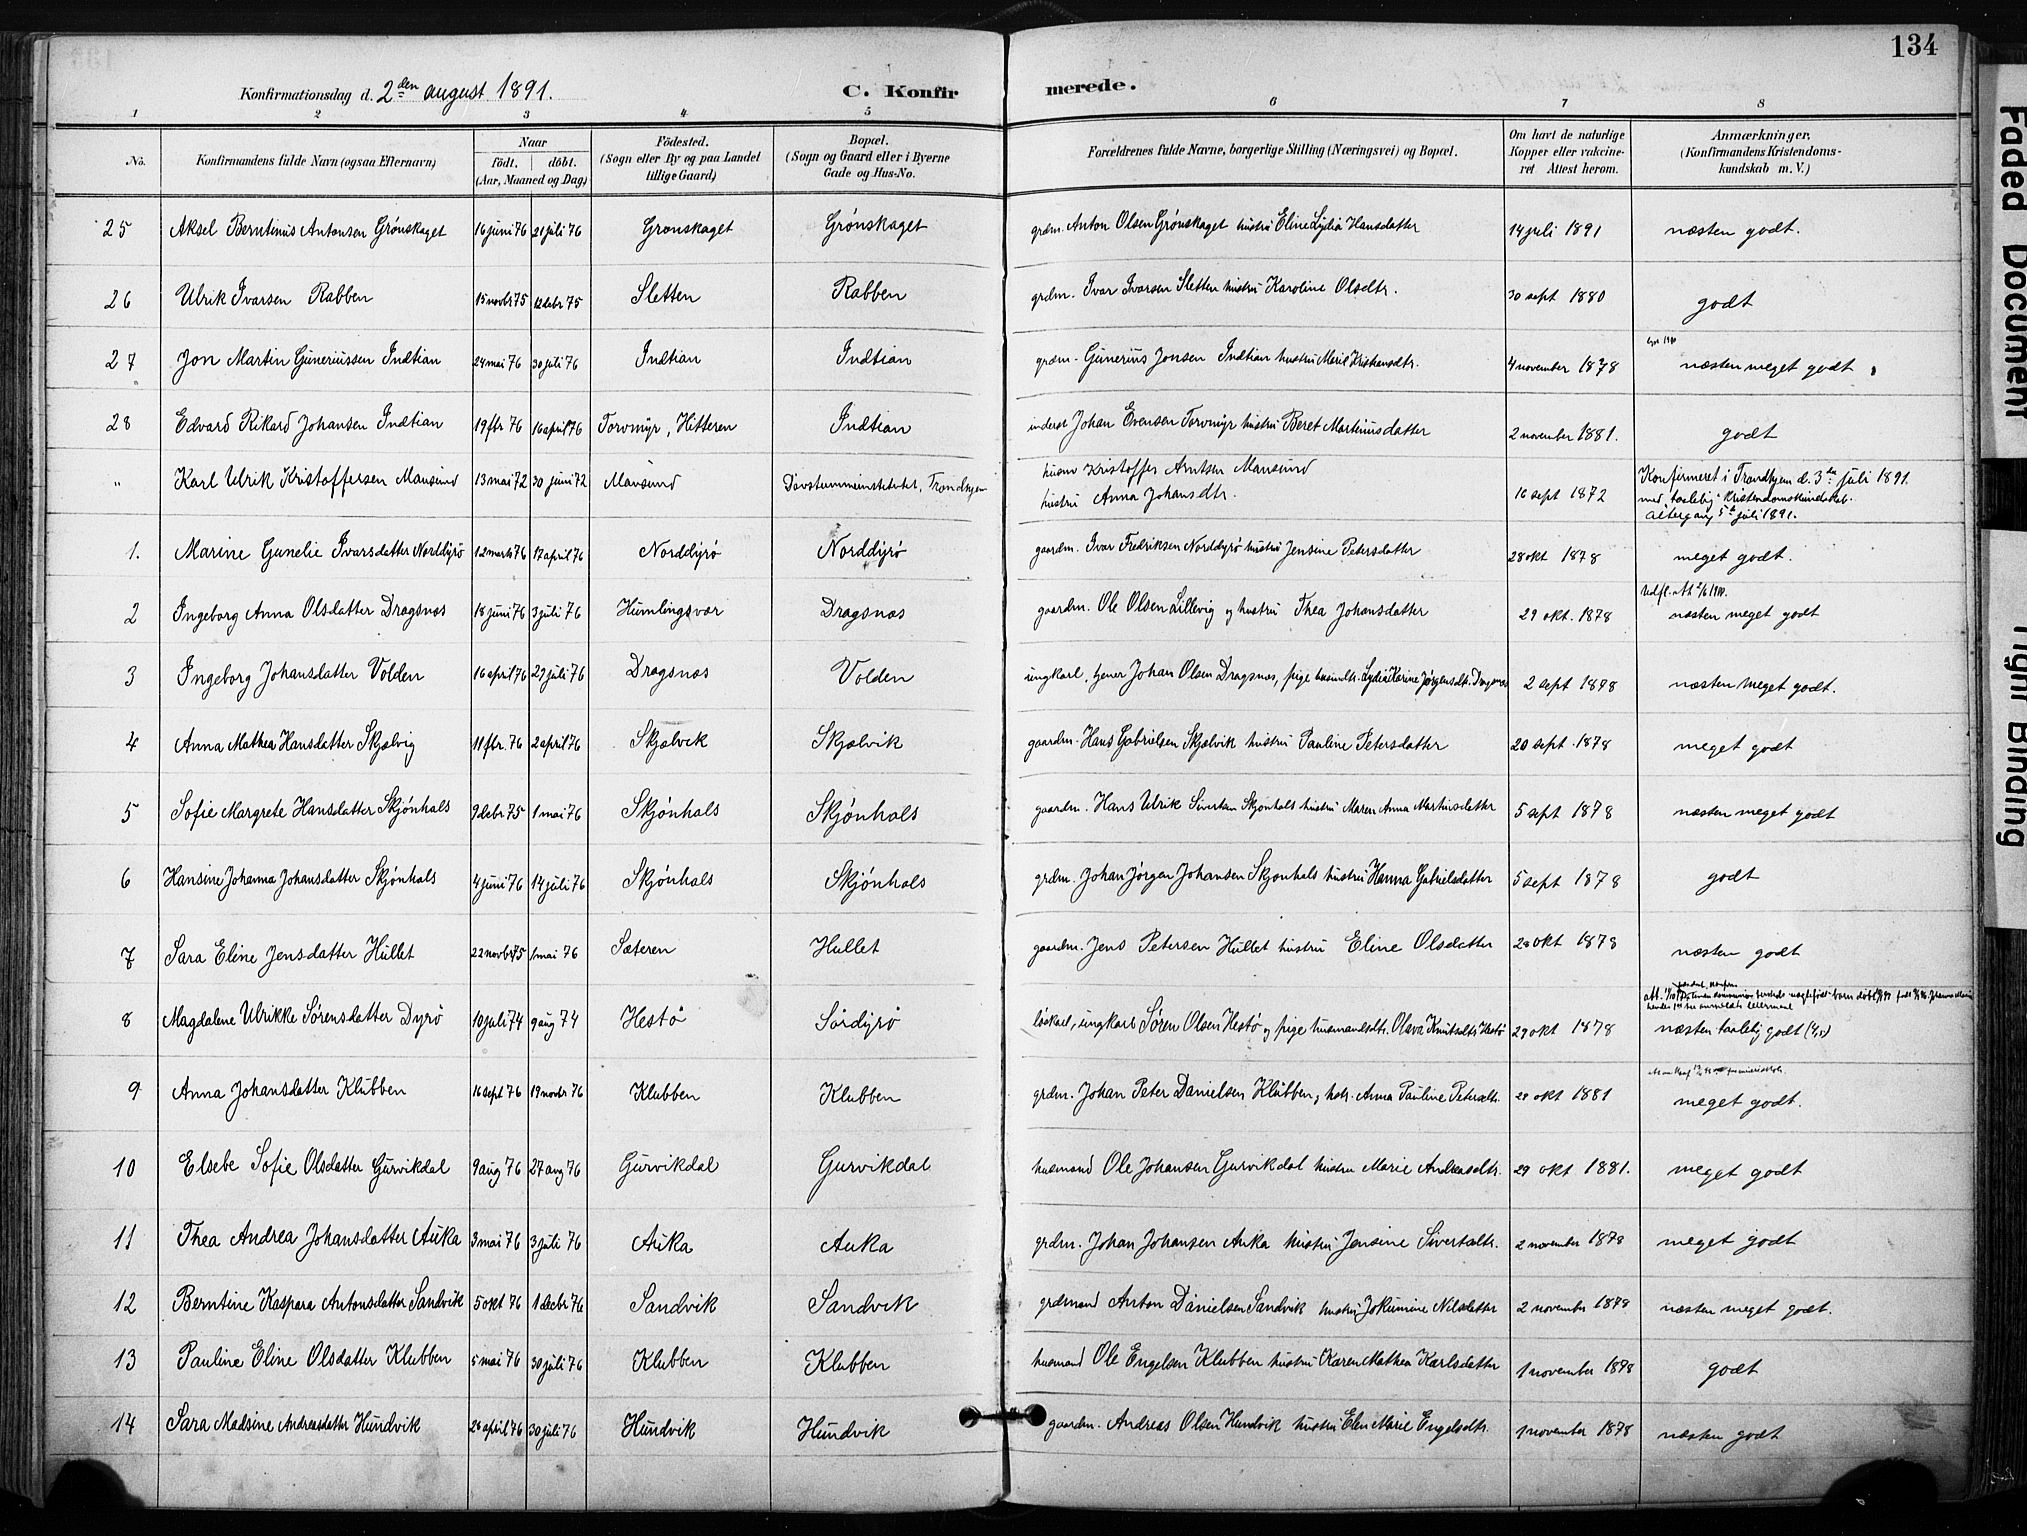 134
Konfirmationsdag d. 2den august 1891. C. Konfir merede.
1 2 3 4 5 6 7 8
No. Konfirmandens fulde Navn (ogsaa Efternavn) Naar født. døbt. (Aar, Maaned og Dag) Fødested. (Sogn eller By og paa Landet tillige Gaard) Bopæl. (Sogn og Gaard eller i Byerne Gade og Hus-No. Forældrenes fulde Navne, borgerlige Stilling (Næringsvei) og Bopæl. Om havt de naturlige Kopper eller vakcineret Attest herom. Anmærkninger. (Konfirmandens Kristendomskundskab m. V.)
25 Aksel Berntinus Antonsen Grønskaget 16 juni 76 21 juli 76 Grønskaget Grønskaget grdm. Anton Olsen Grønskaget hustru Eline Lydia Hansdatter 14 juli 1891 næsten godt.
26 Ulrik Ivarsen Rabben 15 novbr 75 12 debr 75 Sletten Rabben grdm. Ivar Ivarsen Sletten hustru Karoline Olsdtr. 30 sept 1880 godt
27 Jon Martin Guneriussen Indtian 24 mai 76 30 juli 76 Indtian Indtian grdm. Gunerius Jonsen Indtian hustru Marie Kristiansdtr. 4 november 1878 næsten meget godt
28 Edvard Rikard Johansen Indtian 19 fbr 76 16 april 76 Torvmyr, Hitteren Indtian inderst Johan Evensen Torvmyr hustru Beret Martinusdatter 2 november 1881. godt
" Karl Ulrik Kristoffersen Mausund 13 mai 72 30 juni 72 Mausund Døvstummeinstitutet, Trondhjem husm Kristoffer Arntsen Mausund 16 sept 1872 Konfirmeret i Trondhjem d. 3die juli 1891.
hustru Anna Johansdtr. med taalelig kristendomskundskab.
altergang 5te juli 1891.
1. Marine Gunelie Ivarsdatter Norddyrø 12 marts 76 17 april 76 Norddyrø Norddyrø gaardm. Ivar Fredriksen Norddyrø hustru Jensine Petersdatter 28 okt 1878 meget godt.
2 Ingeborg Anna Olsdatter Dragsnæs 18 juni 76 3 juli 76 Humlingsvær Dragsnæs gaardm. Ole Olsen Lillevig og hustru Thea Johansdatter 29 okt. 1878 næsten meget godt
3 Ingeborg Johansdatter Volden 16 april 76 27 juli 76 Dragsnæs Volden ungkarl, tjener Johan Olsen Dragsnæs, pige husmdtr. Lydia Karine Jørgensdtr. Dragsnæs 2 sept 1878 næsten meget godt.
4 Anna Mathea Hansdatter Skjælvig 11 fbr. 76 2 april 76 Skjælvik Skjælvik gaardm. Hans Gabrielsen Skjælvik hustru Pauline Petersdatter 20 sept. 1878 meget godt
5 Sofie Margrete Hansdatter Skjønhals 9 debr 75 1 mai 76 Skjønhals Skjønhals gaardm. Hans Ulrik Sivertsen Skjønhals hustru Maren Anna Martinsdatter 5 sept 1878 næsten meget godt
6 Hansine Johanna Johansdatter Skjønhals 4 juni 76 14 juli 76 Skjønhals Skjønhals grdm. Johan Jørgen Johansen Skjønhals hustru Hanna Gabrielsdatter 5 sept 1878 godt
7 Sara Eline Jensdatter Hullet 22 novbr 75 1 mai 76 Sæteren Hullet gaardm. Jens Petersen Hullet hustru Eline Olsdatter 28 okt 1878 næsten godt
8 Magdalene Ulrikke Sørensdatter Dyrø 10 juli 74 9 aug 74 Hestø Sørdyrø løskarl, ungkarl Søren Olsen Hestø og pige husmandsdtr. Olava Knutsdtr Hestø 29 okt 1878 næsten taalelig godt
9 Anna Johansdatter Klubben 16 sept 76 19 novbr 76 Klubben Klubben grdm. Johan Peter Danielsen Klubben, hstr. Anna Pauline Petersdtr. 28 okt 1881 meget godt.
10 Elsebe Sofie Olsdatter Gurvikdal 9 aug 76 27 aug 76 Gurvikdal Gurvikdal husmand Ole Johansen Gurvikdal hustru Marie Andreasdtr. 29 okt 1881. meget godt
11 Thea Andrea Johansdatter Auka 3 mai 76 3 juli 76 Auka Auka grdm. Johan Johansen Auka hustru Jensine Sivertsdtr. 2 november 1878 meget godt
12 Berntine Kaspara Antonsdatter Sandvik 5 okt 76 1 decbr 76 Sandvik Sandvik grdmand Anton Danielsen Sandvik hustru Jokumine Nilsdatter 2 november 1878 næsten meget godt.
13 Pauline Eline Olsdatter Klubben 5 mai 76 30 juli 76 Klubben Klubben husmand Ole Engelsen Klubben hustru Karen Mathea Karlsdatter 1 november 1878 godt
14 Sara Madsine Andreasdatter Hundvik 26 april 76 30 juli 76 Hundvik Hundvik gaardm. Andreas Olsen Hundvik hustru Elen Marie Engelsdtr. 1 november 1878 næsten godt
Faded Document
Tight Binding